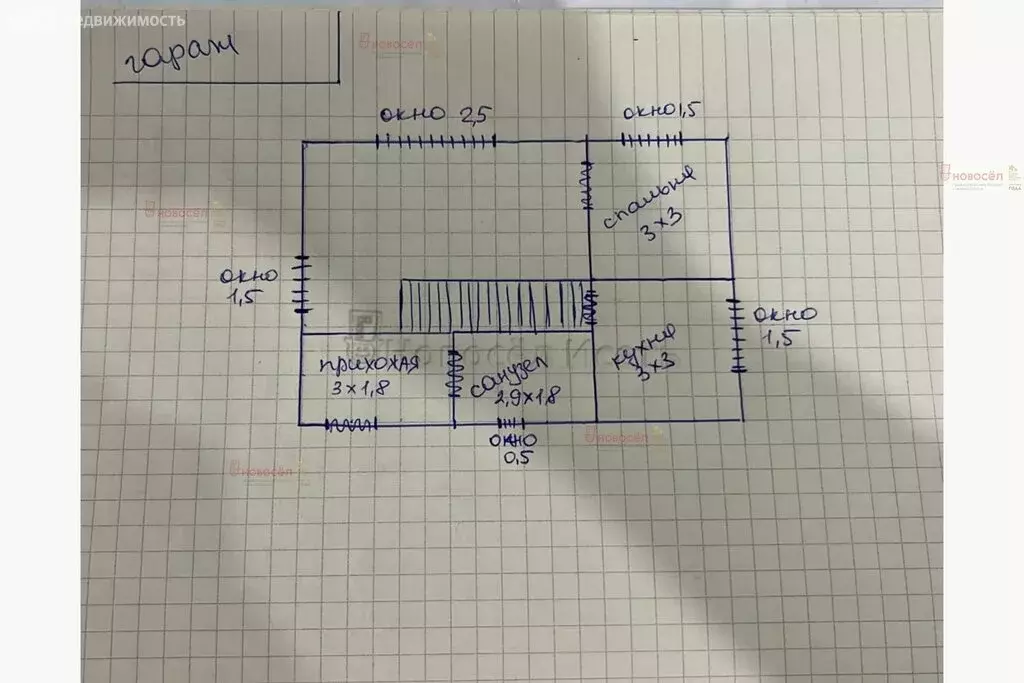 недвижимость
гараж
новосёл
окно 2,5
окно 1,5
спальня
3х3
новосёл
новосёл
окно
1,5
окно
1,5
прихожая
3х1,8
санузел
2,9х1,8
кухня
3х3
окно
0,5
новосёл
новосёл